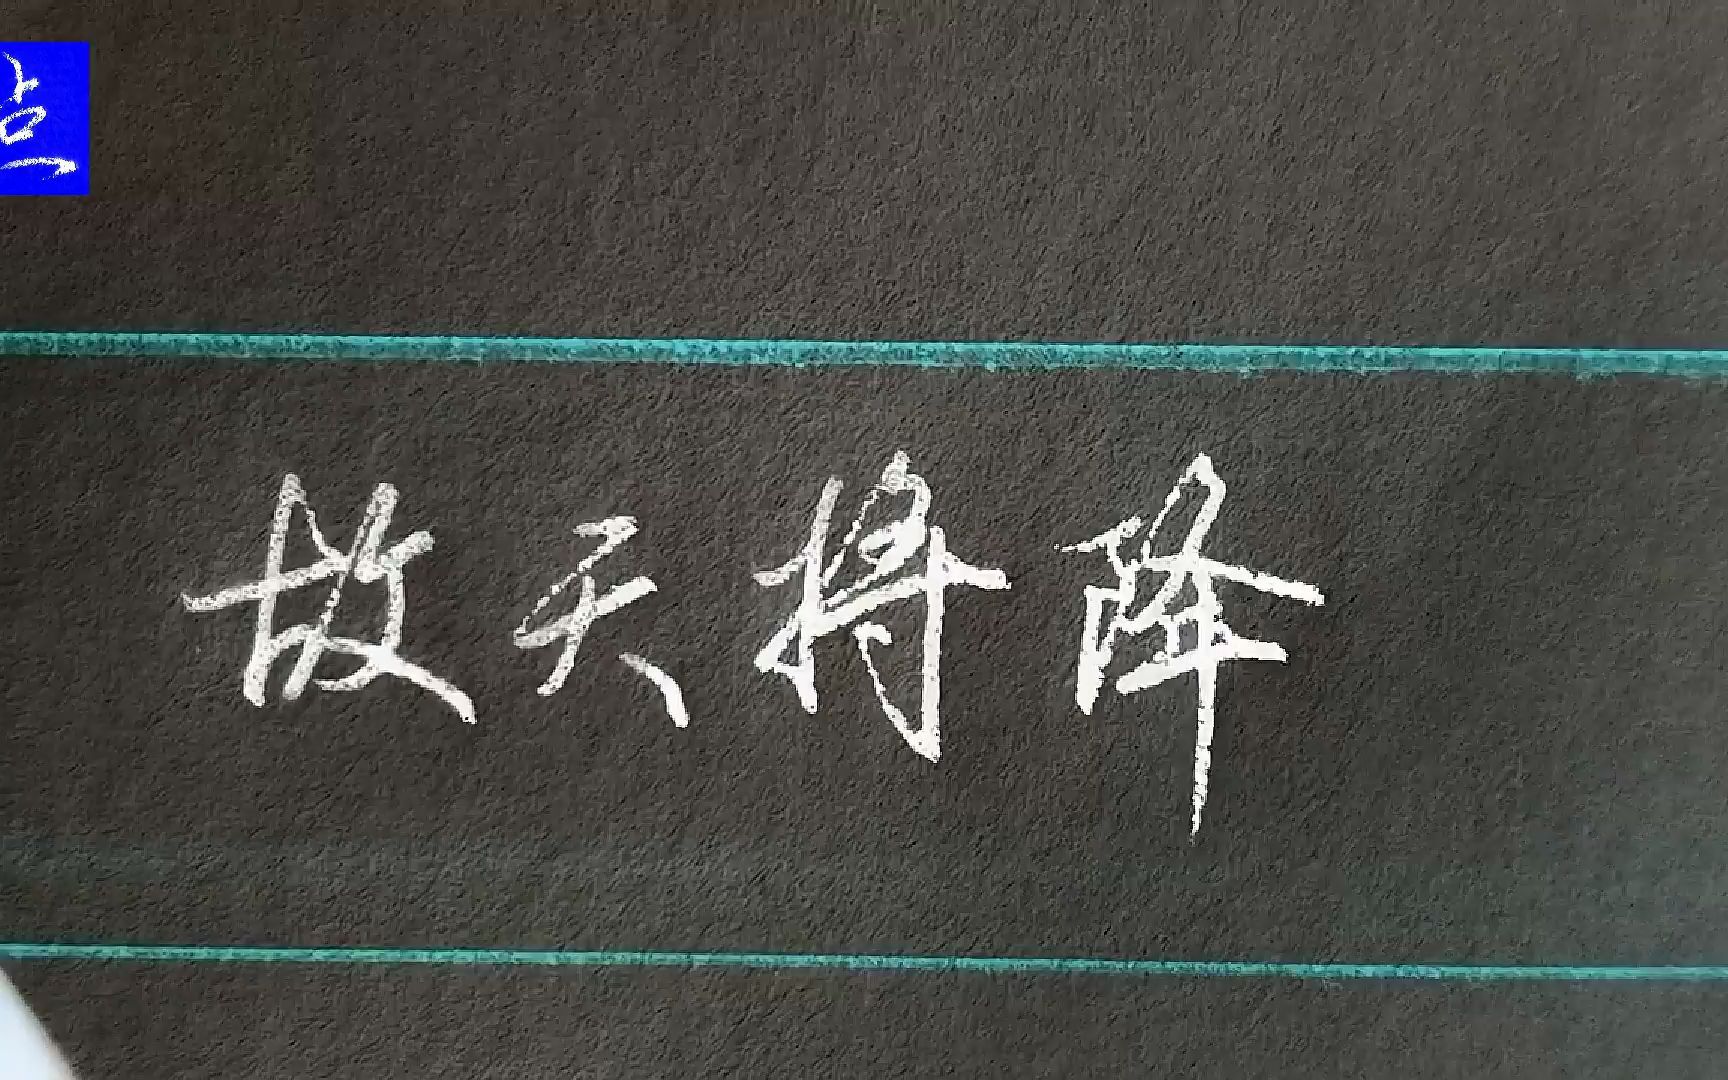 故天将降